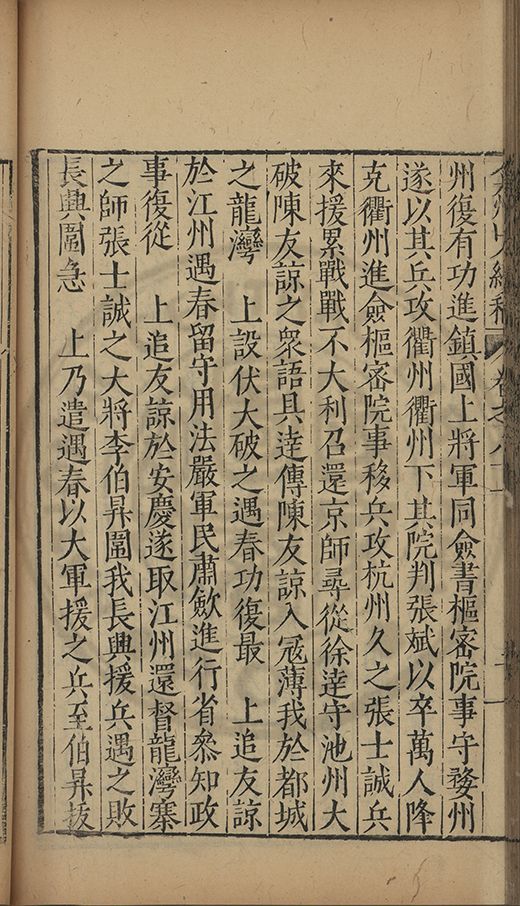 州復有功進鎮國上將軍同僉書樞密院事守婺州
遂以其兵攻衢州衢州下其院判張斌以卒萬人降
克衢州進僉樞密院事移兵攻杭州久之張士誠兵
來援累戰戰不大利召還京師尋從徐逹守池州大
破陳友諒之衆語具逹傳陳友諒入冦薄我於都城
之龍灣　上設伏大破之遇春功復最　上追友諒
於江州遇春留守用法嚴軍民肅歛進行省叅知政
事復從　上追友諒於安慶遂取江州還督龍灣寨
之師張士誠之大將李伯昇圍我長興援兵遇之敗
長興圍急　上乃遣遇春以大軍援之兵至伯昇拔